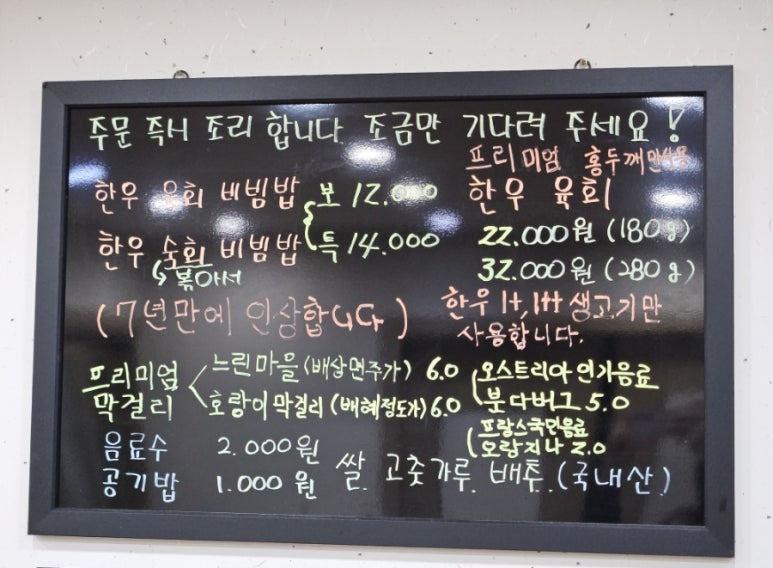 주문 즉시 조리 합니다 조금만 기다려 주세요!
한우 육회 비빔밥 보 12.000
한우 숙회 비빔밥 특 14.000
볶아서
(7년만에 인상합니다)
프리미엄 홍두깨만사용
한우 육회
22.000원 (180g)
32.000원 (280g)
한우 1+, 1++ 생고기만
사용합니다.
프리미엄 막걸리
느린마을 (배상면주가) 6.0
호랑이 막걸리 (배혜정도가) 6.0
오스트리아 인가음료
붓다버그 5.0
프랑스국민음료
오랑지나 2.0
음료수 2.000원
공기밥 1.000원
쌀. 고춧가루. 배추. (국내산)